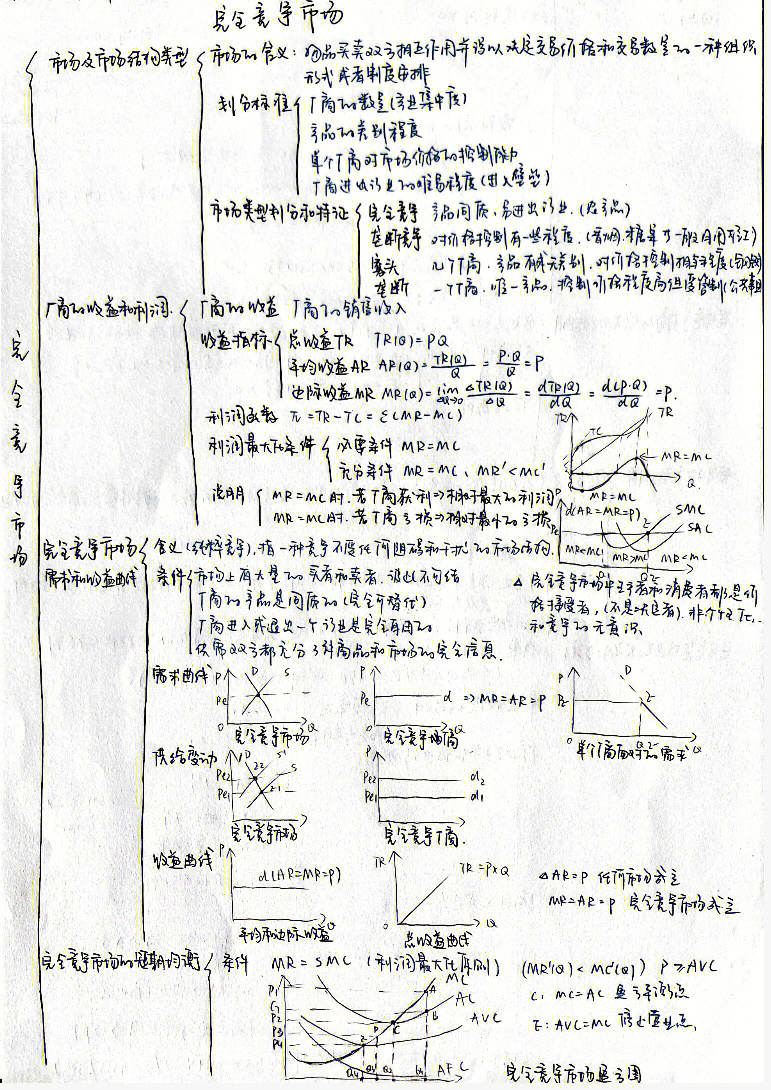 完全竞争市场
市场及市场结构类型
市场的含义：物品买卖双方相互作用并得以决定交易价格和交易数量的一种组织
形式或者制度安排
划分标准
厂商的数量(产业集中度)
产品的类别程度
单个厂商对市场价格的控制能力
厂商进出行业的难易程度(进入壁垒)
市场类型划分和特征
完全竞争 产品同质、易进出行业.(农产品)
垄断竞争 对价格控制有一些程度.
寡头 几个厂商.产品有或无差别.对价格控制相当程度
垄断 一个厂商.唯一产品.控制价格程度高但受管制
厂商的收益和利润
厂商的收益 厂商的销售收入
收益指标
总收益TR TR(Q)=PQ
平均收益AR AR(Q)=TR(Q)/Q=P·Q/Q=P
边际收益MR MR(Q)=lim ΔQ→0 ΔTR(Q)/ΔQ=dTR(Q)/dQ=d(P·Q)/dQ=P.
利润函数 π=TR-TC=Σ(MR-MC)
利润最大化条件
必要条件 MR=MC
充分条件 MR=MC、MR'<MC'
说明
MR=MC时.若厂商获利⇒相对最大的利润
MR=MC时.若厂商亏损⇒相对最小的亏损
TR
TC
TR
MR=MC
Q
MR=MC
P
d(AR=MR=P)
SMC
SAC
Pe
E
MR<MC
MR>MC
MR<MC
完全竞争市场
完全竞争市场
需求和收益曲线
含义(纯粹竞争).指一种竞争不受任何阻碍和干扰的市场结构.
条件
市场上有大量的买者和卖者.彼此不勾结
厂商的产品是同质的(完全可替代)
厂商进入或退出一个行业是完全自由的
供需双方都充分了解商品和市场的完全信息.
△ 完全竞争市场中生产者和消费者都是价
格接受者,(不是决定者).非个性化.
和竞争的无意识
需求曲线
P D S
Pe
O Q
完全竞争市场
P
Pe d ⇒MR=AR=P
O Q
完全竞争厂商
P D
Pe E
O Q
单个厂商面对的需求
供给变动
P D S' S
Pe2 E2
Pe1 E1
完全竞争市场
P
Pe2 d2
Pe1 d1
完全竞争厂商.
收益曲线
P
d(AR=MR=P)
Q
平均和边际收益
TR
TR=P×Q
O Q
总收益曲线
△AR=P 任何市场成立
MR=AR=P 完全竞争市场成立
完全竞争市场的短期均衡
条件 MR=SMC (利润最大化原则) (MR'(Q)<MC'(Q)) P≥AVC
C: MC=AC 盈亏平衡点
E: AVC=MC 停止营业点.
P1
P2
P3
P4
MC
A
AC
B
AVC
C
D
E
AFC
完全竞争市场盈亏图